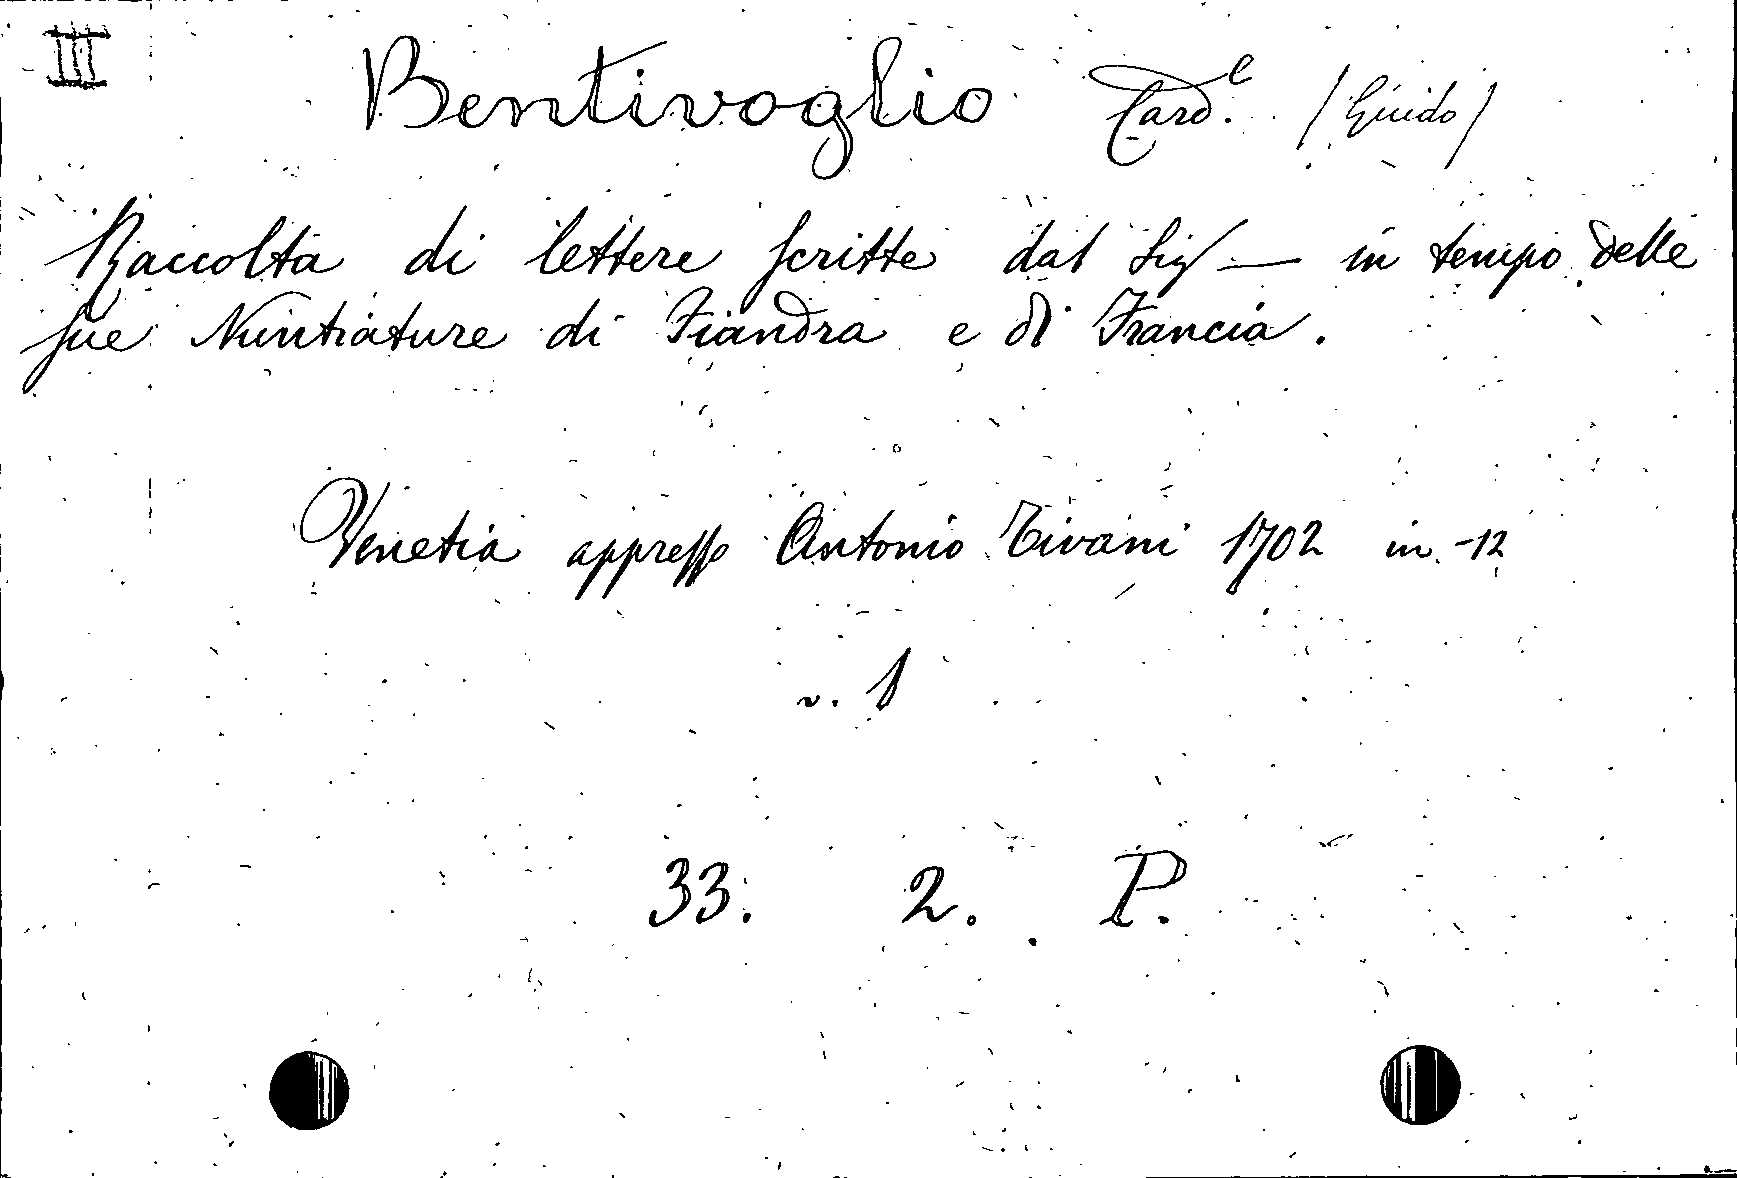 III
Bentivoglio Card.e (Guido)
Raccolta di lettere scritte dal Sig — in tempo delle
sue Nuntiature di Fiandra e di Francia.
Venetia appresso Antonio Tivani 1702 in-12
v. 1
33. 2. P.